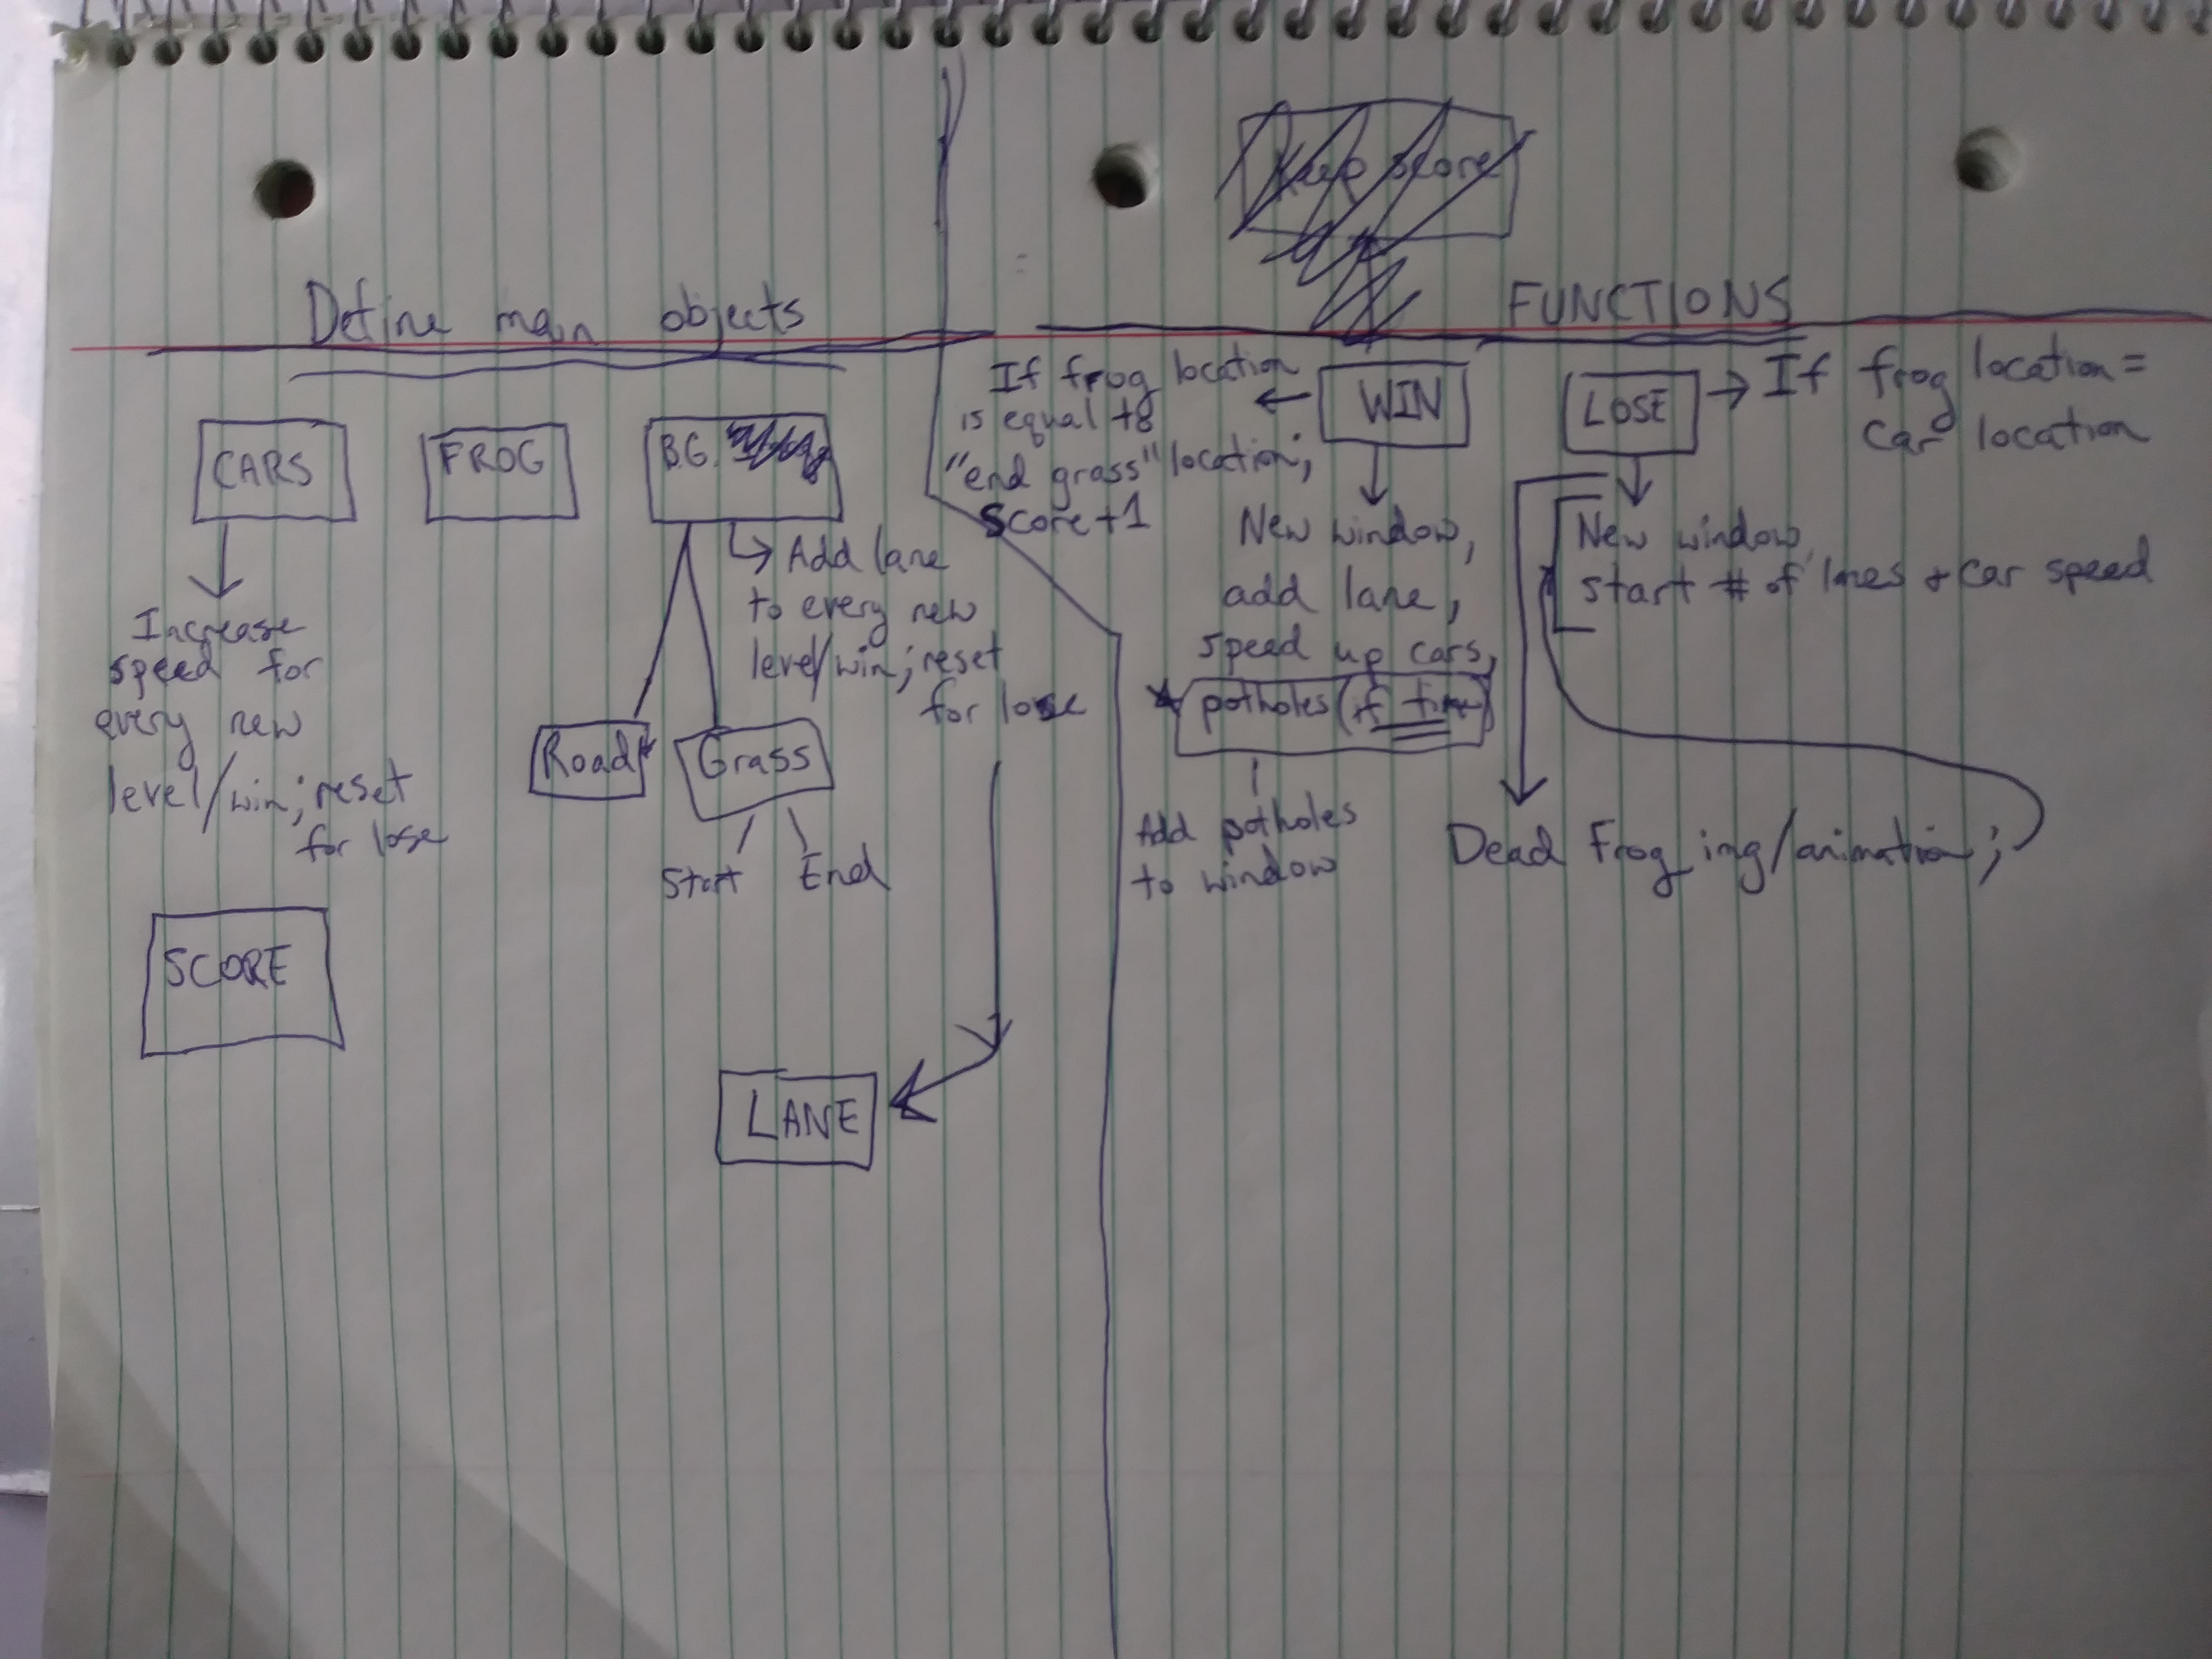 Define main objects
CARS
Increase
speed for
every new
level/win; reset
for lose
FROG
B.G.
Add lane
to every new
level/win; reset
for lose
Road
Grass
Start
End
SCORE
LANE
Keep score
FUNCTIONS
WIN
If frog location
is equal to
"end grass" location;
Score+1
New window,
add lane,
speed up cars,
potholes (if time)
Add potholes
to window
LOSE
If frog location =
car location
New window,
start # of lanes + car speed
Dead Frog img/animation;